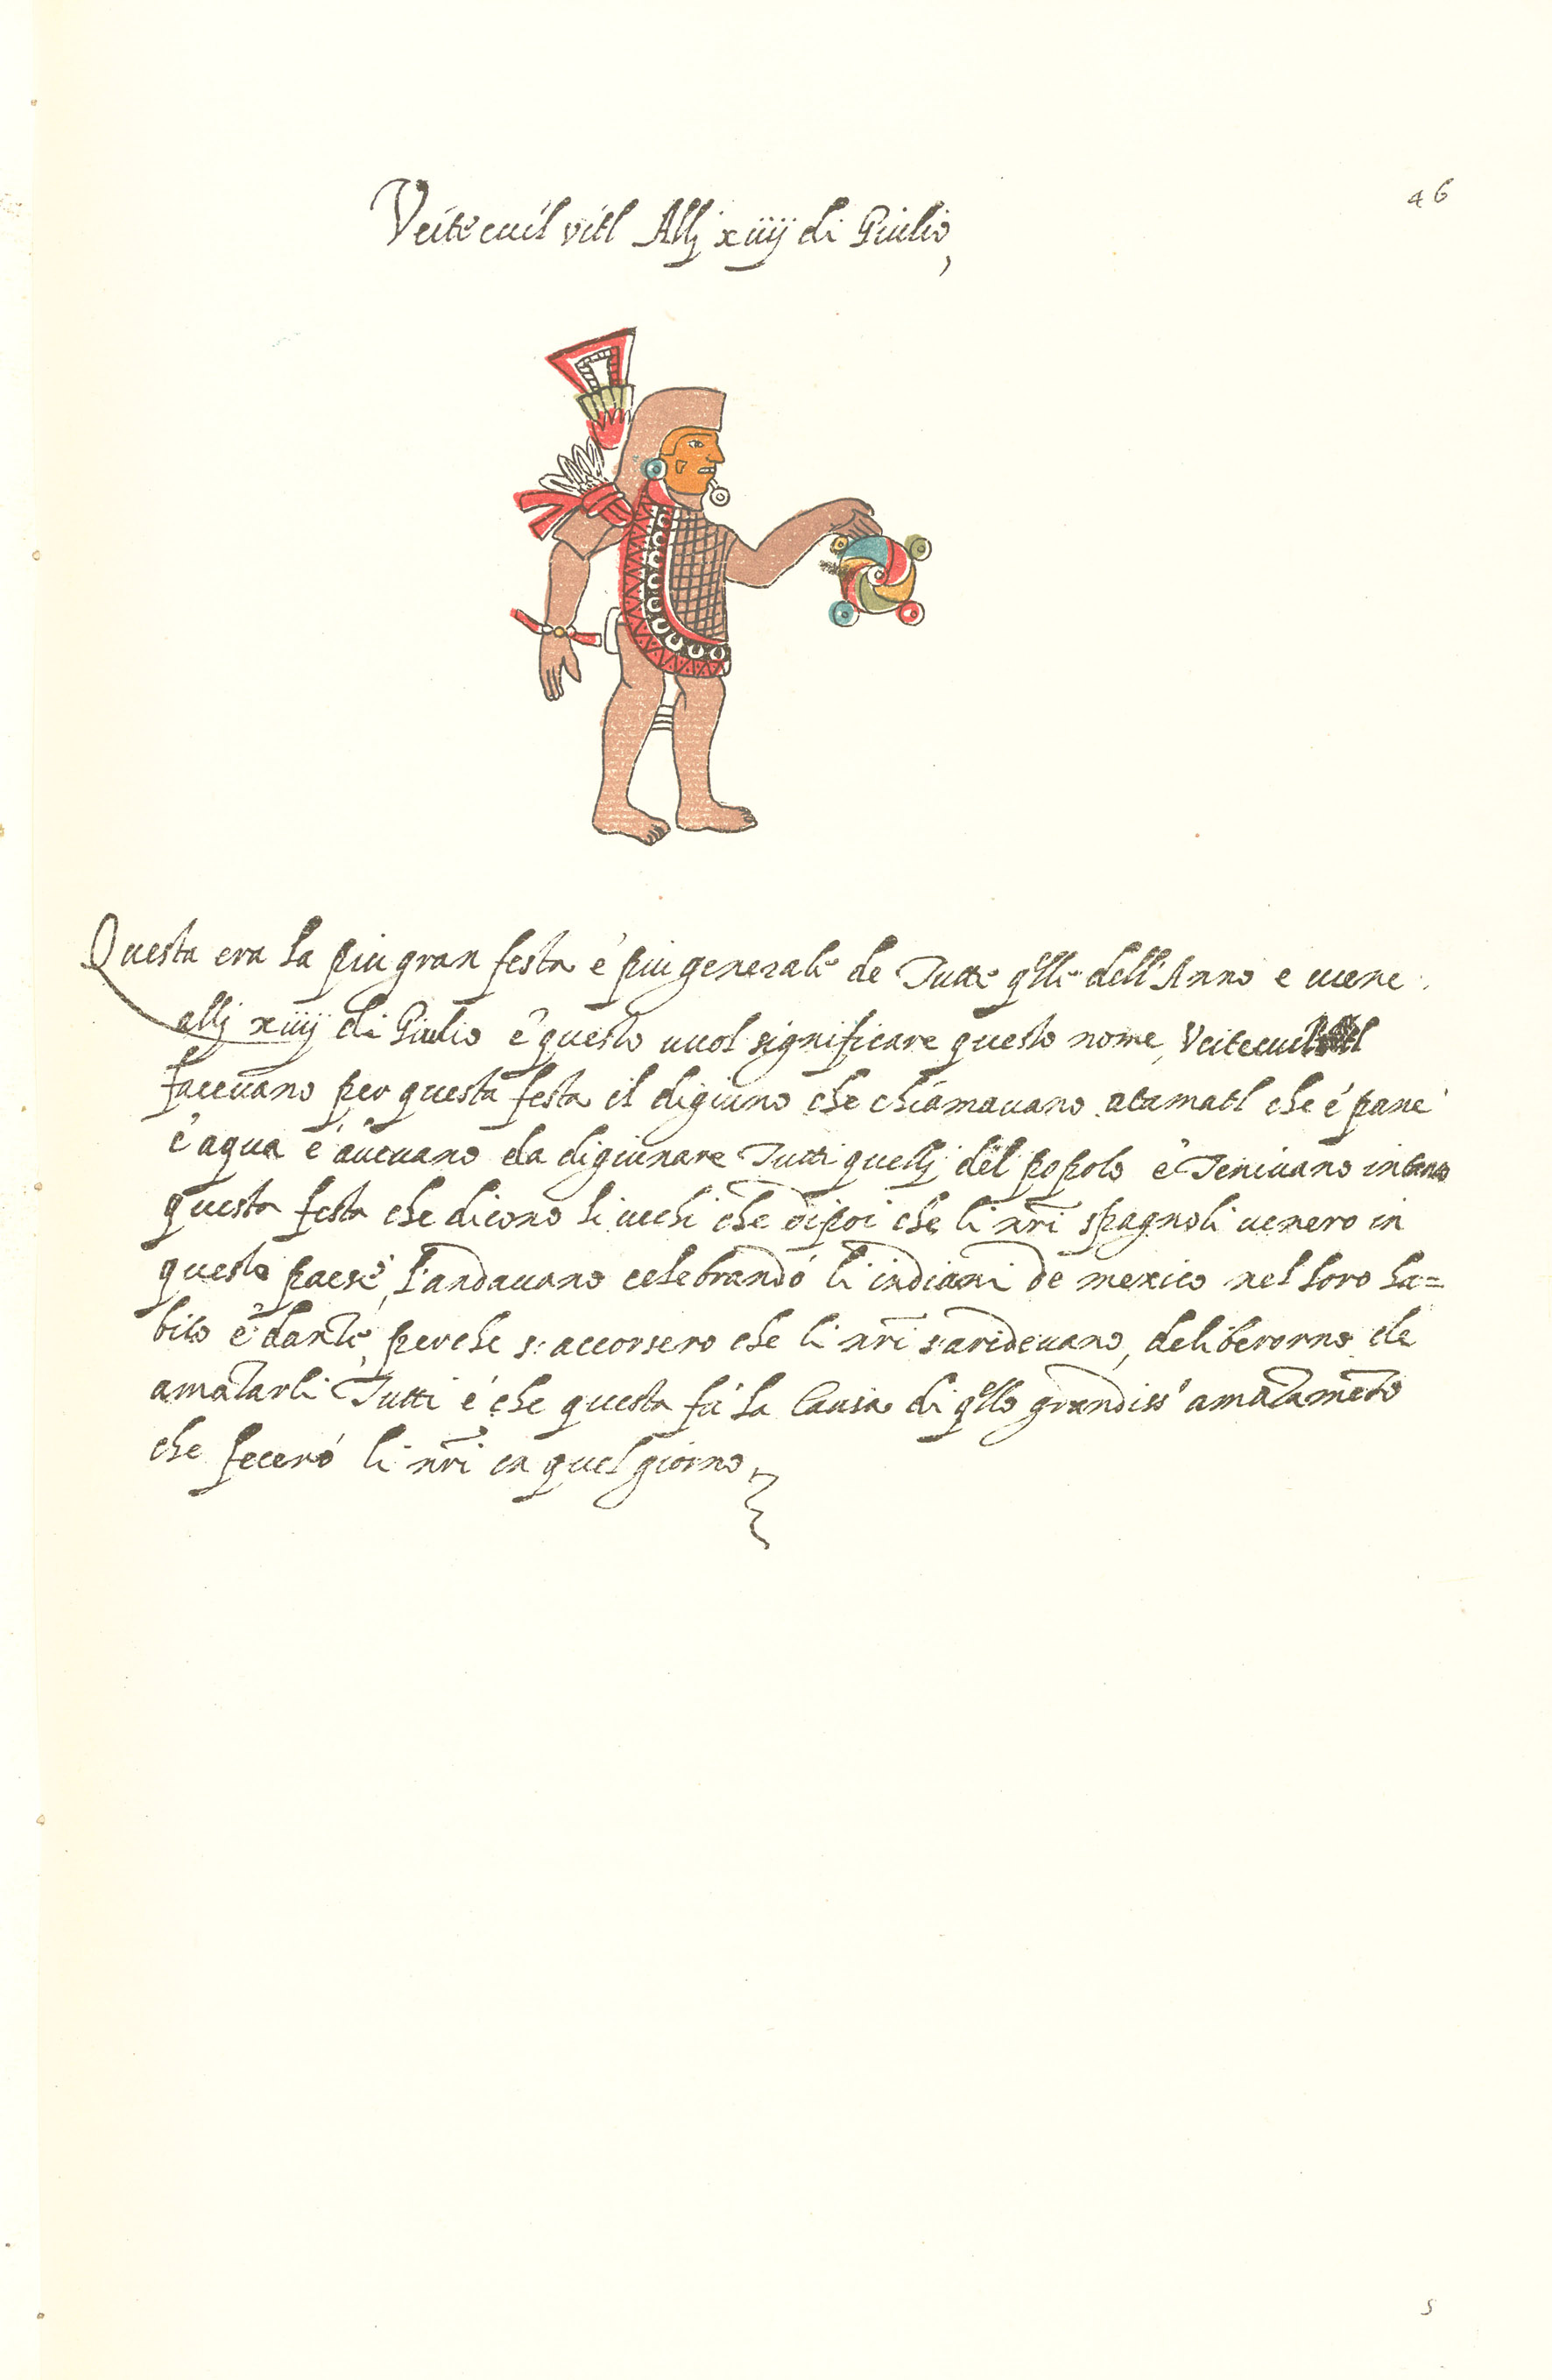 46
Veitecuil vitl Allj xiiij di Giulio,
Questa era la piu gran festa e' piu generale de Tutte q̃lle dell'Anno e uiene
allj xiiij di Giulio e' questo uuol significare questo nome, Veitecuil
faceuano per questa festa il digiuno che chiamauano atamatl che e' pane
e' aqua e' aueuano da digiunare Tutti quellj del popolo e' Teniuano in tanto
questa festa che dicono li uechi che dipoi che li nr̃i spagnoli uenero in
questo paese, l'andauano celebrando li indiani de mexico nel loro ha=
bito e' dante, perche s: accorsero che li nr̃i s: arideuano, deliberorno de
amatarli Tutti e' che questa fú la Causa di q̃llo grandiss.º amatamẽto
che fecero li nr̃i in quel giorno
5